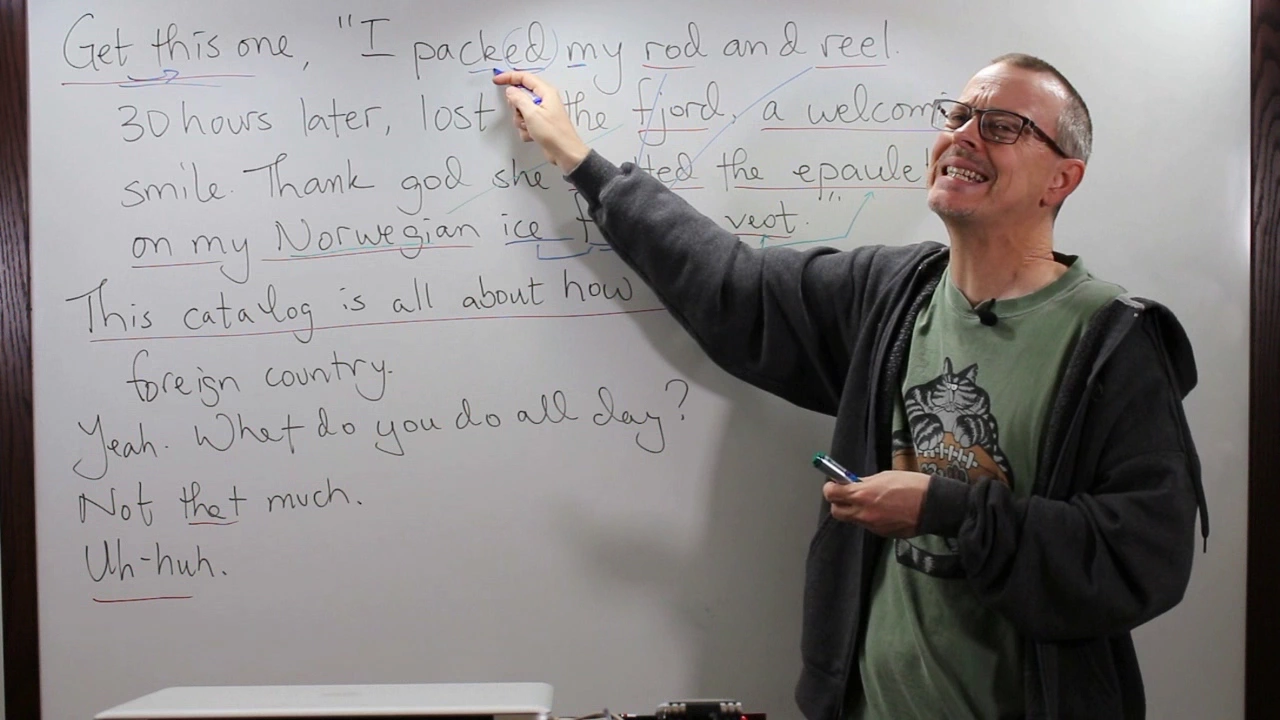 Get this one, "I packed my rod and reel.
30 hours later, lost the fjord, a welcomi
smile. Thank god she ted the epaule
on my Norwegian ice f vest."
This catalog is all about how
foreign country.
Yeah. What do you do all day?
Not that much.
Uh-huh.